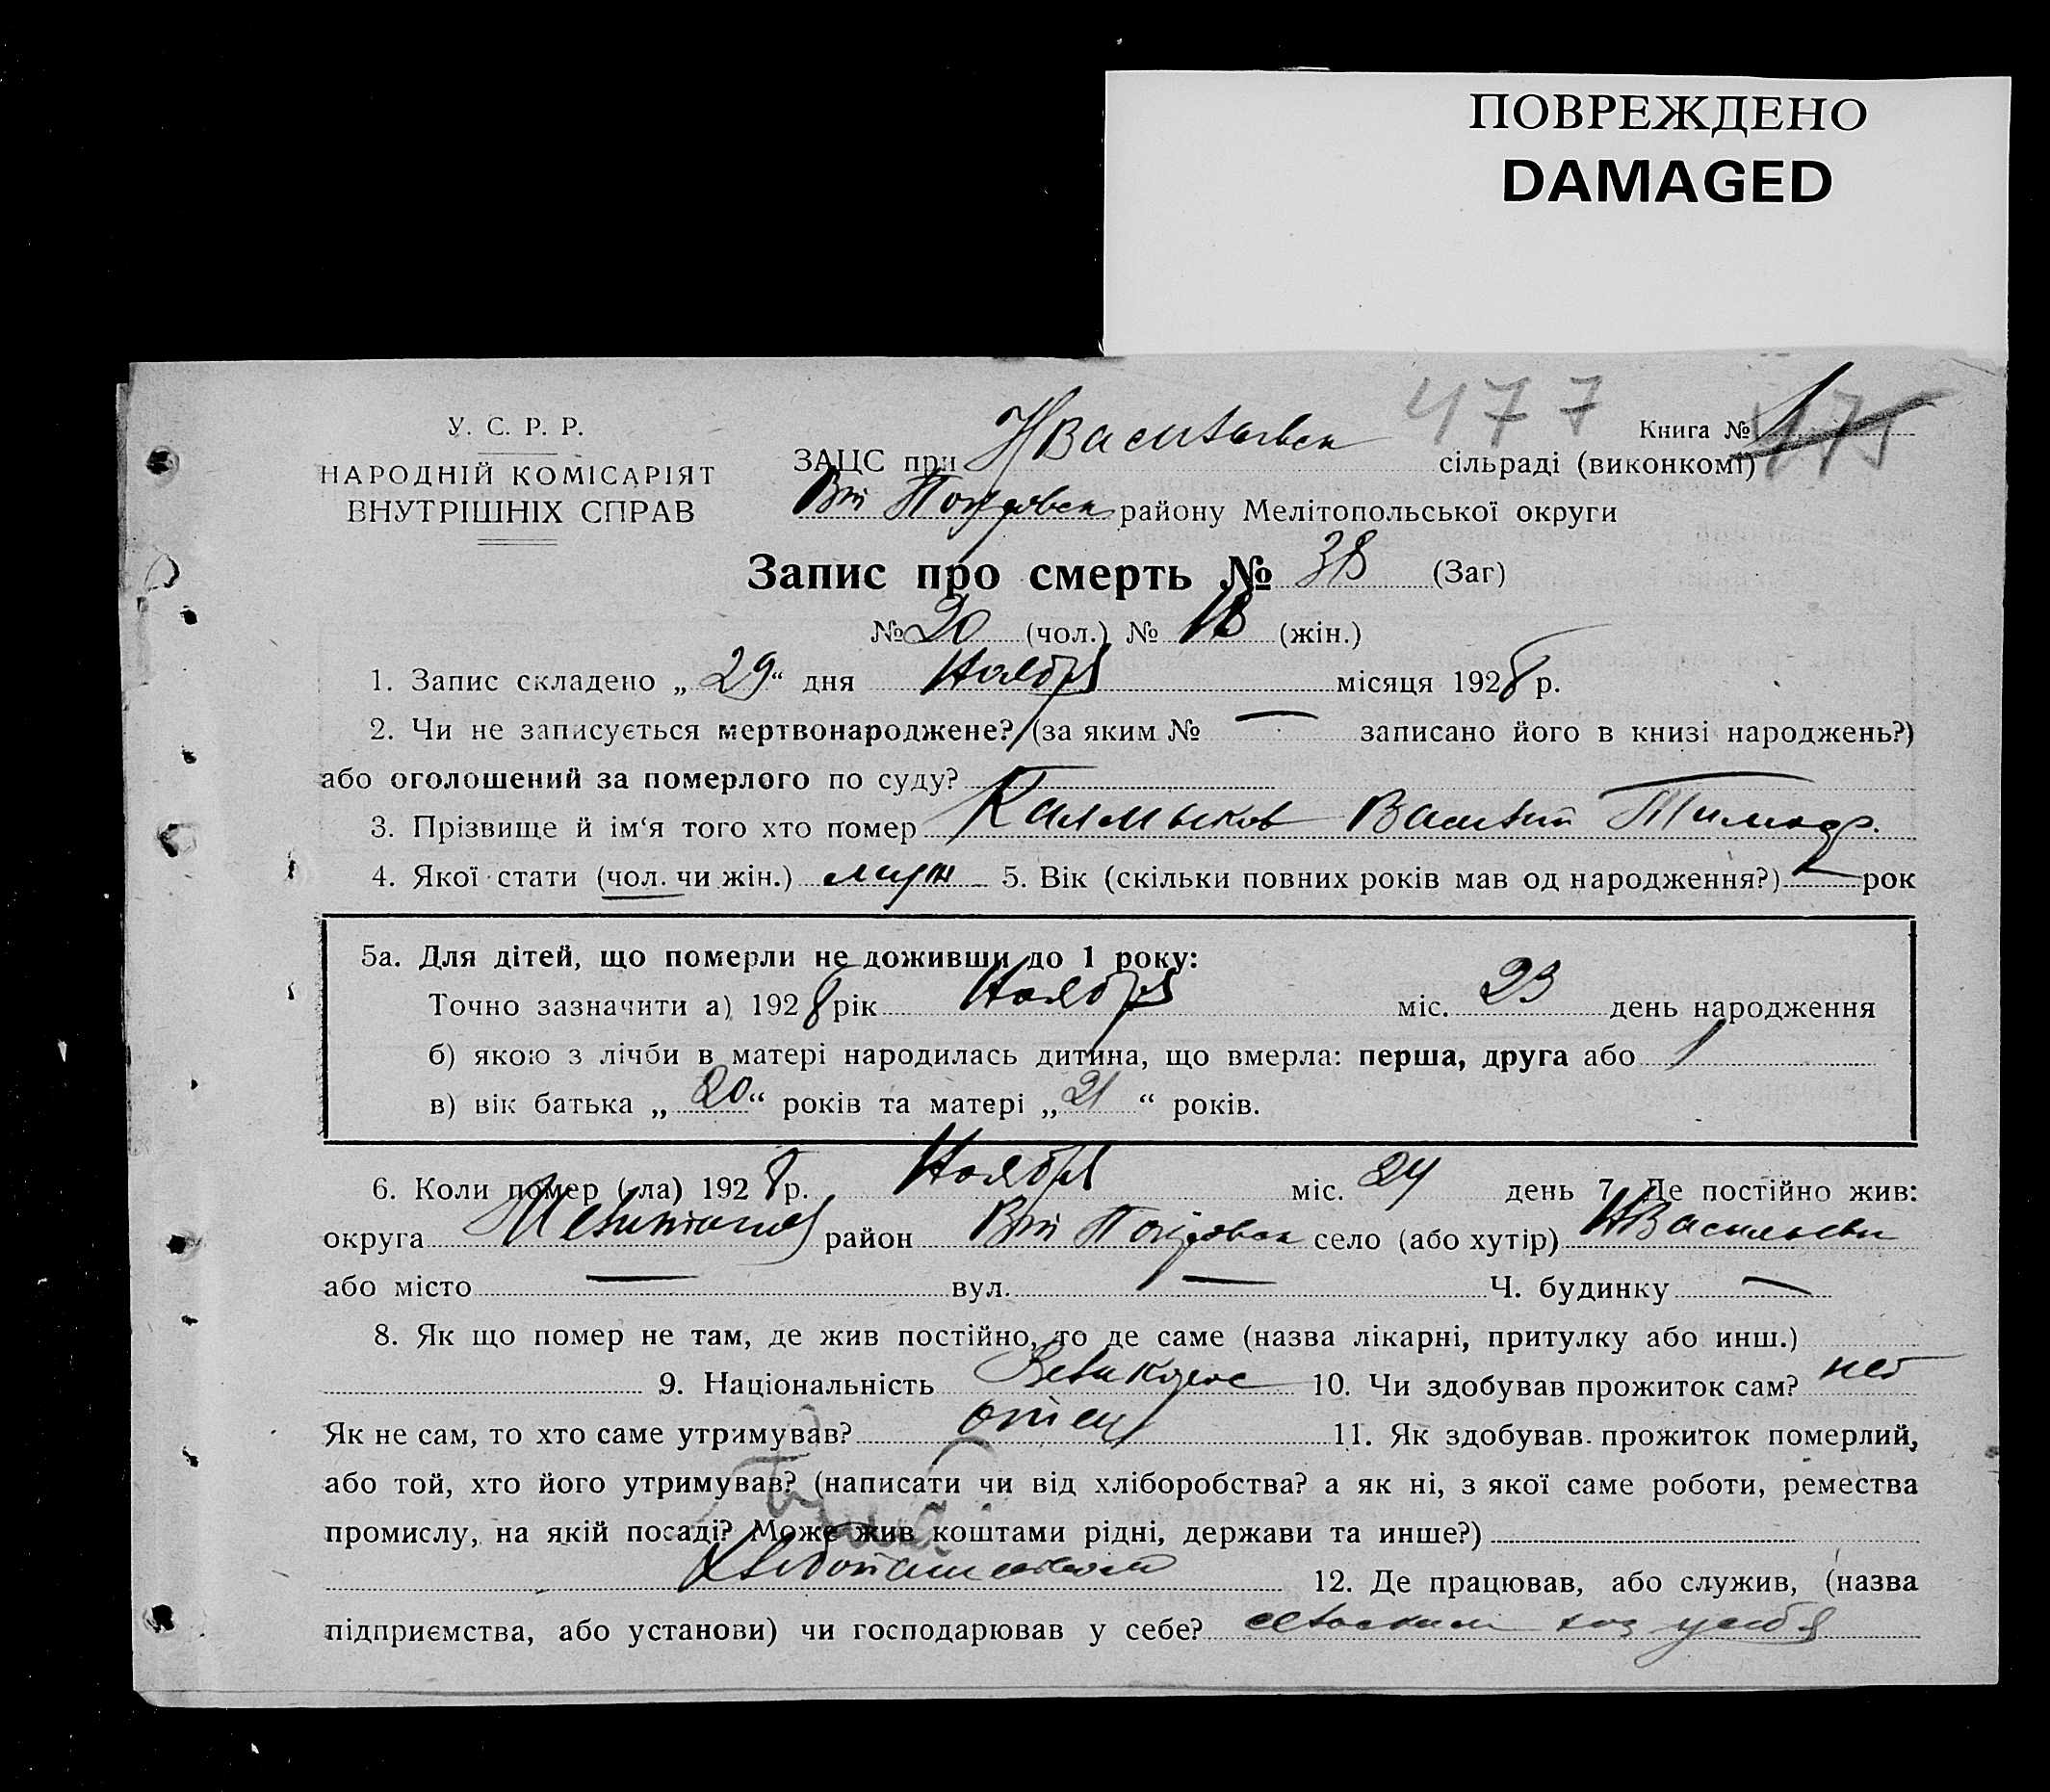 ПОВРЕЖДЕНО
DAMAGED
477
У. С. Р. Р.
НАРОДНІЙ КОМІСАРІЯТ
ВНУТРІШНІХ СПРАВ
Книга № 1
475
ЗАЦС при НВасильевск сільраді (виконкомі)
району Мелітопольської округи
Запис про смерть № 38 (Заг)
№ 20 (чол.) № 18 (жін.)
1. Запис складено „ 29 “ дня Ноября місяця 1928 р.
2. Чи не записується мертвонароджене? (за яким № — записано його в книзі народжень?)
або оголошений за померлого по суду?
3. Прізвище й ім‘я того хто помер Калмыков Василий Тимоф.
4. Якої стати (чол. чи жін.) муж 5. Вік (скільки повних років мав од народження?) — рок
5а. Для дітей, що померли не доживши до 1 року:
Точно зазначити а) 1928 рік Ноября міс. 23 день народження
б) якою з лічби в матері народилась дитина, що вмерла: перша, друга або 1
в) вік батька „ 20 “ років та матері „ 21 “ років.
6. Коли помер (-ла) 1928 р. Ноября міс. 24 день 7. Де постійно жив:
округа Мелитопол район село (або хутір) НВасильевк
або місто — вул. — Ч. будинку —
8. Як що помер не там, де жив постійно, то де саме (назва лікарні, притулку або инш.)
9. Національність Великорос 10. Чи здобував прожиток сам? нет
Як не сам, то хто саме утримував? отец 11. Як здобував прожиток померлий,
або той, хто його утримував? (написати чи від хліборобства? а як ні, з якої саме роботи, ремества
промислу, на якій посаді? Може жив коштами рідні, держави та инше?)
Хлебопашеством 12. Де працював, або служив, (назва
підприємства, або установи) чи господарював у себе? сельским хоз у себя